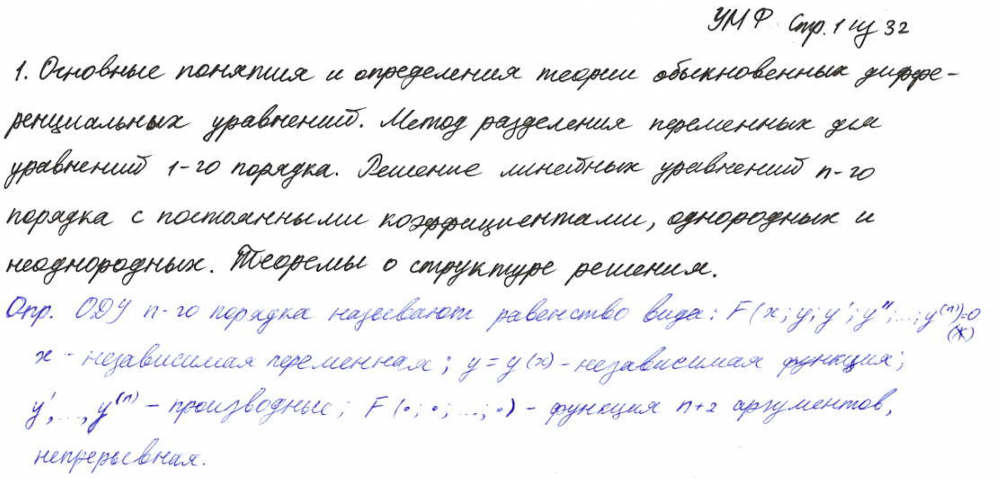 УМФ Стр. 1 из 32
1. Основные понятия и определения теории обыкновенных диффе-
ренциальных уравнений. Метод разделения переменных для
уравнений 1-го порядка. Решение линейных уравнений n-го
порядка с постоянными коэффициентами, однородных и
неоднородных. Теоремы о структуре решения.
Опр. ОДУ n-го порядка называют равенство вида: F(x; y; y'; y''; ...; y⁽ⁿ⁾)=0
(*)
x - независимая переменная; y = y(x) - независимая функция;
y', ..., y⁽ⁿ⁾ - производные; F(•; •; ...; •) - функция n+2 аргументов,
непрерывная.